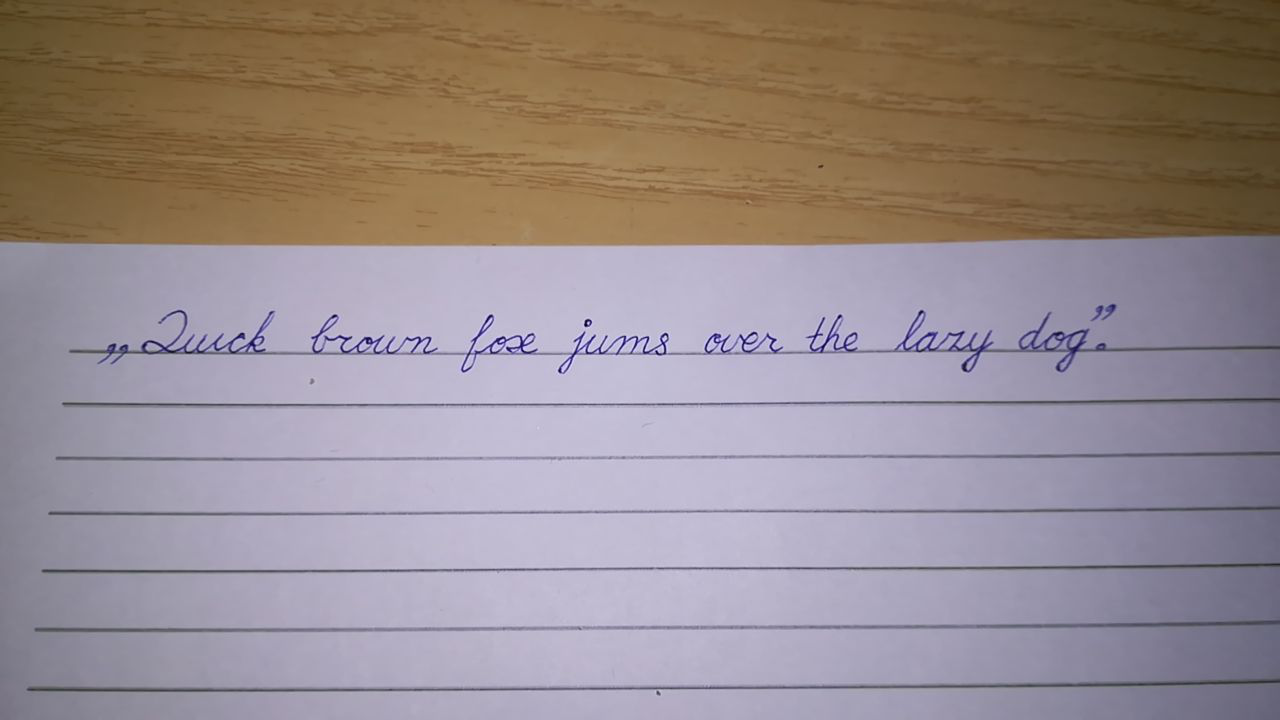 „Quick brown fox jums over the lazy dog”.